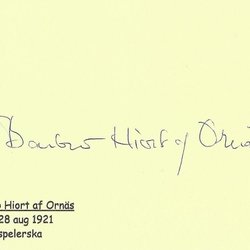 Barbro Hiort af Ornä
o Hiort af Ornäs
28 aug 1921
spelerska